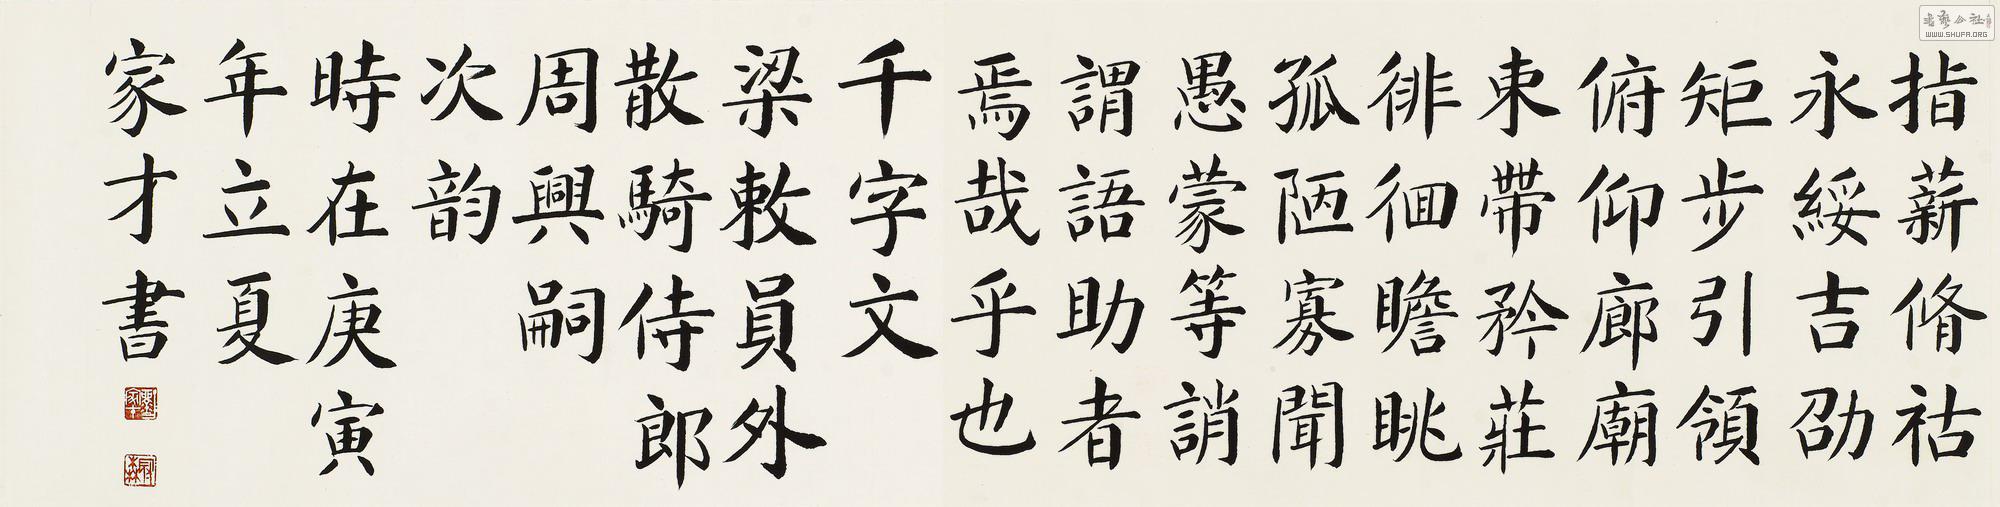 指薪脩祜
永綏吉劭
矩步引領
俯仰廊廟
束帶矜莊
徘徊瞻眺
孤陋寡聞
愚蒙等誚
謂語助者
焉哉乎也
千字文
梁敕員外
散騎侍郎
周興嗣
次韵
時在庚寅
年立夏
家才書
WWW.SHUFA.ORG